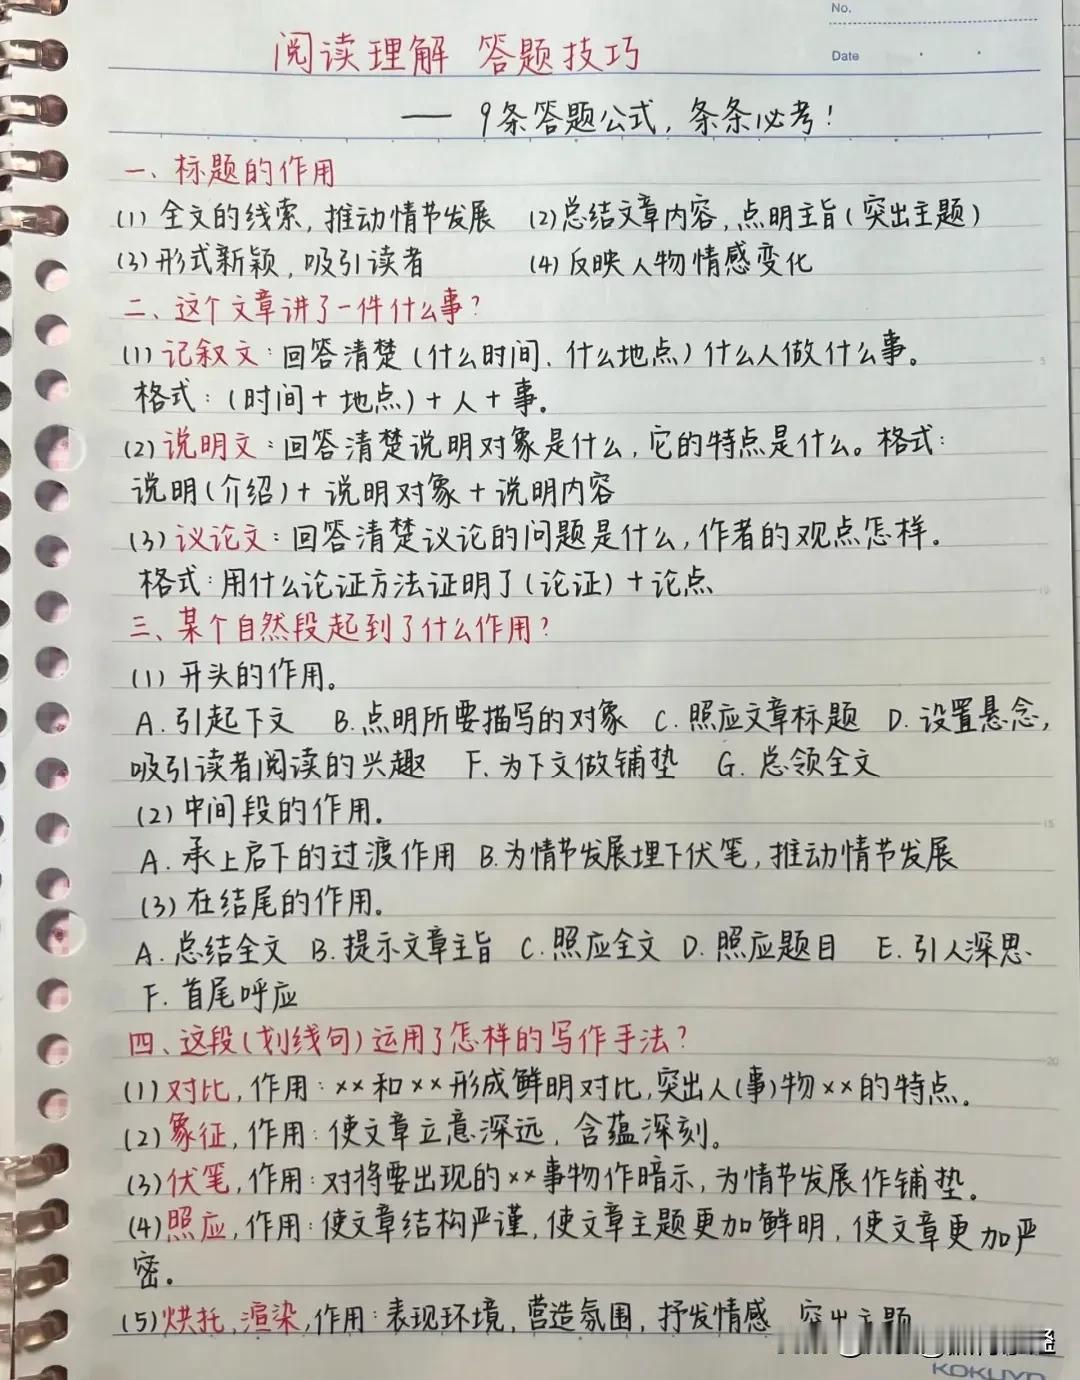 No.
Date
阅读理解 答题技巧
—— 9条答题公式，条条必考！
一、标题的作用
(1) 全文的线索，推动情节发展 (2)总结文章内容，点明主旨(突出主题)
(3)形式新颖，吸引读者 (4)反映人物情感变化
二、这个文章讲了一件什么事？
(1) 记叙文：回答清楚(什么时间、什么地点)什么人做什么事。
格式：(时间+地点)+人+事。
(2)说明文：回答清楚说明对象是什么，它的特点是什么。格式：
说明(介绍)+说明对象+说明内容
(3)议论文：回答清楚议论的问题是什么，作者的观点怎样。
格式：用什么论证方法证明了(论证)+论点
三、某个自然段起到了什么作用？
(1) 开头的作用。
A.引起下文 B.点明所要描写的对象 C.照应文章标题 D.设置悬念，
吸引读者阅读的兴趣 F.为下文做铺垫 G.总领全文
(2)中间段的作用。
A.承上启下的过渡作用 B.为情节发展埋下伏笔，推动情节发展
(3)在结尾的作用。
A.总结全文 B.提示文章主旨 C.照应全文 D.照应题目 E.引人深思.
F.首尾呼应
四、这段(划线句)运用了怎样的写作手法？
(1)对比，作用：××和××形成鲜明对比，突出人(事)物××的特点。
(2)象征，作用：使文章立意深远，含蕴深刻。
(3)伏笔，作用：对将要出现的××事物作暗示，为情节发展作铺垫。
(4)照应，作用：使文章结构严谨，使文章主题更加鲜明，使文章更加严
密。
(5)烘托，渲染，作用：表现环境，营造氛围，抒发情感 突出主题
5
10
15
20
KOKUYO